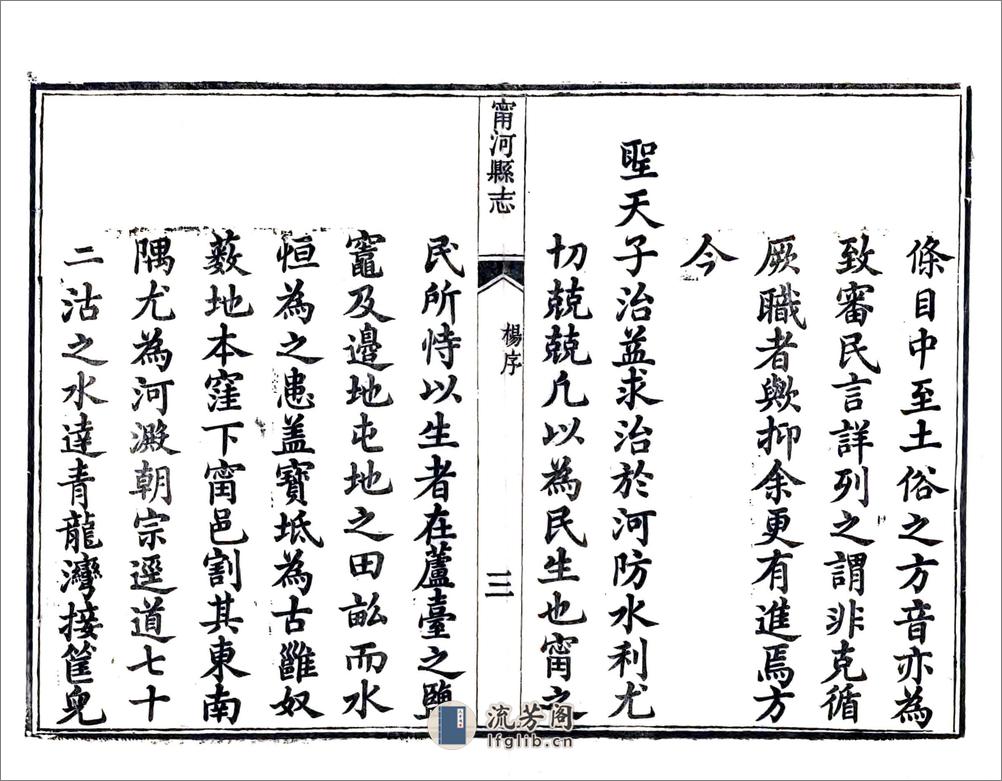 條目中至土俗之方音亦為
致審民言詳列之謂非克循
厥職者歟抑余更有進焉方
今
聖天子治益求治於河防水利尤
切兢兢凢以為民生也甯之
甯河縣志
楊序
三
民所恃以生者在蘆臺之鹽
竈及邉地屯地之田畝而水
恒為之患盖寶坻為古雝奴
藪地本窪下甯邑割其東南
隅尤為河澱朝宗逕道七十
二沽之水達青龍灣接筐兒
流芳阁
lfglib.cn